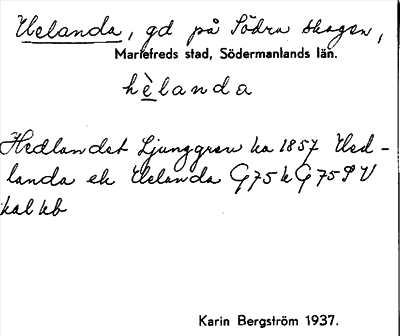 Helanda, gd på Södra skogen,
Mariefreds stad, Södermanlands län.
hèlanda
Hedlandet Ljunggren ka 1857 Hed-
landa ek Helanda G75k G75SV
kal kb
Karin Bergström 1937.